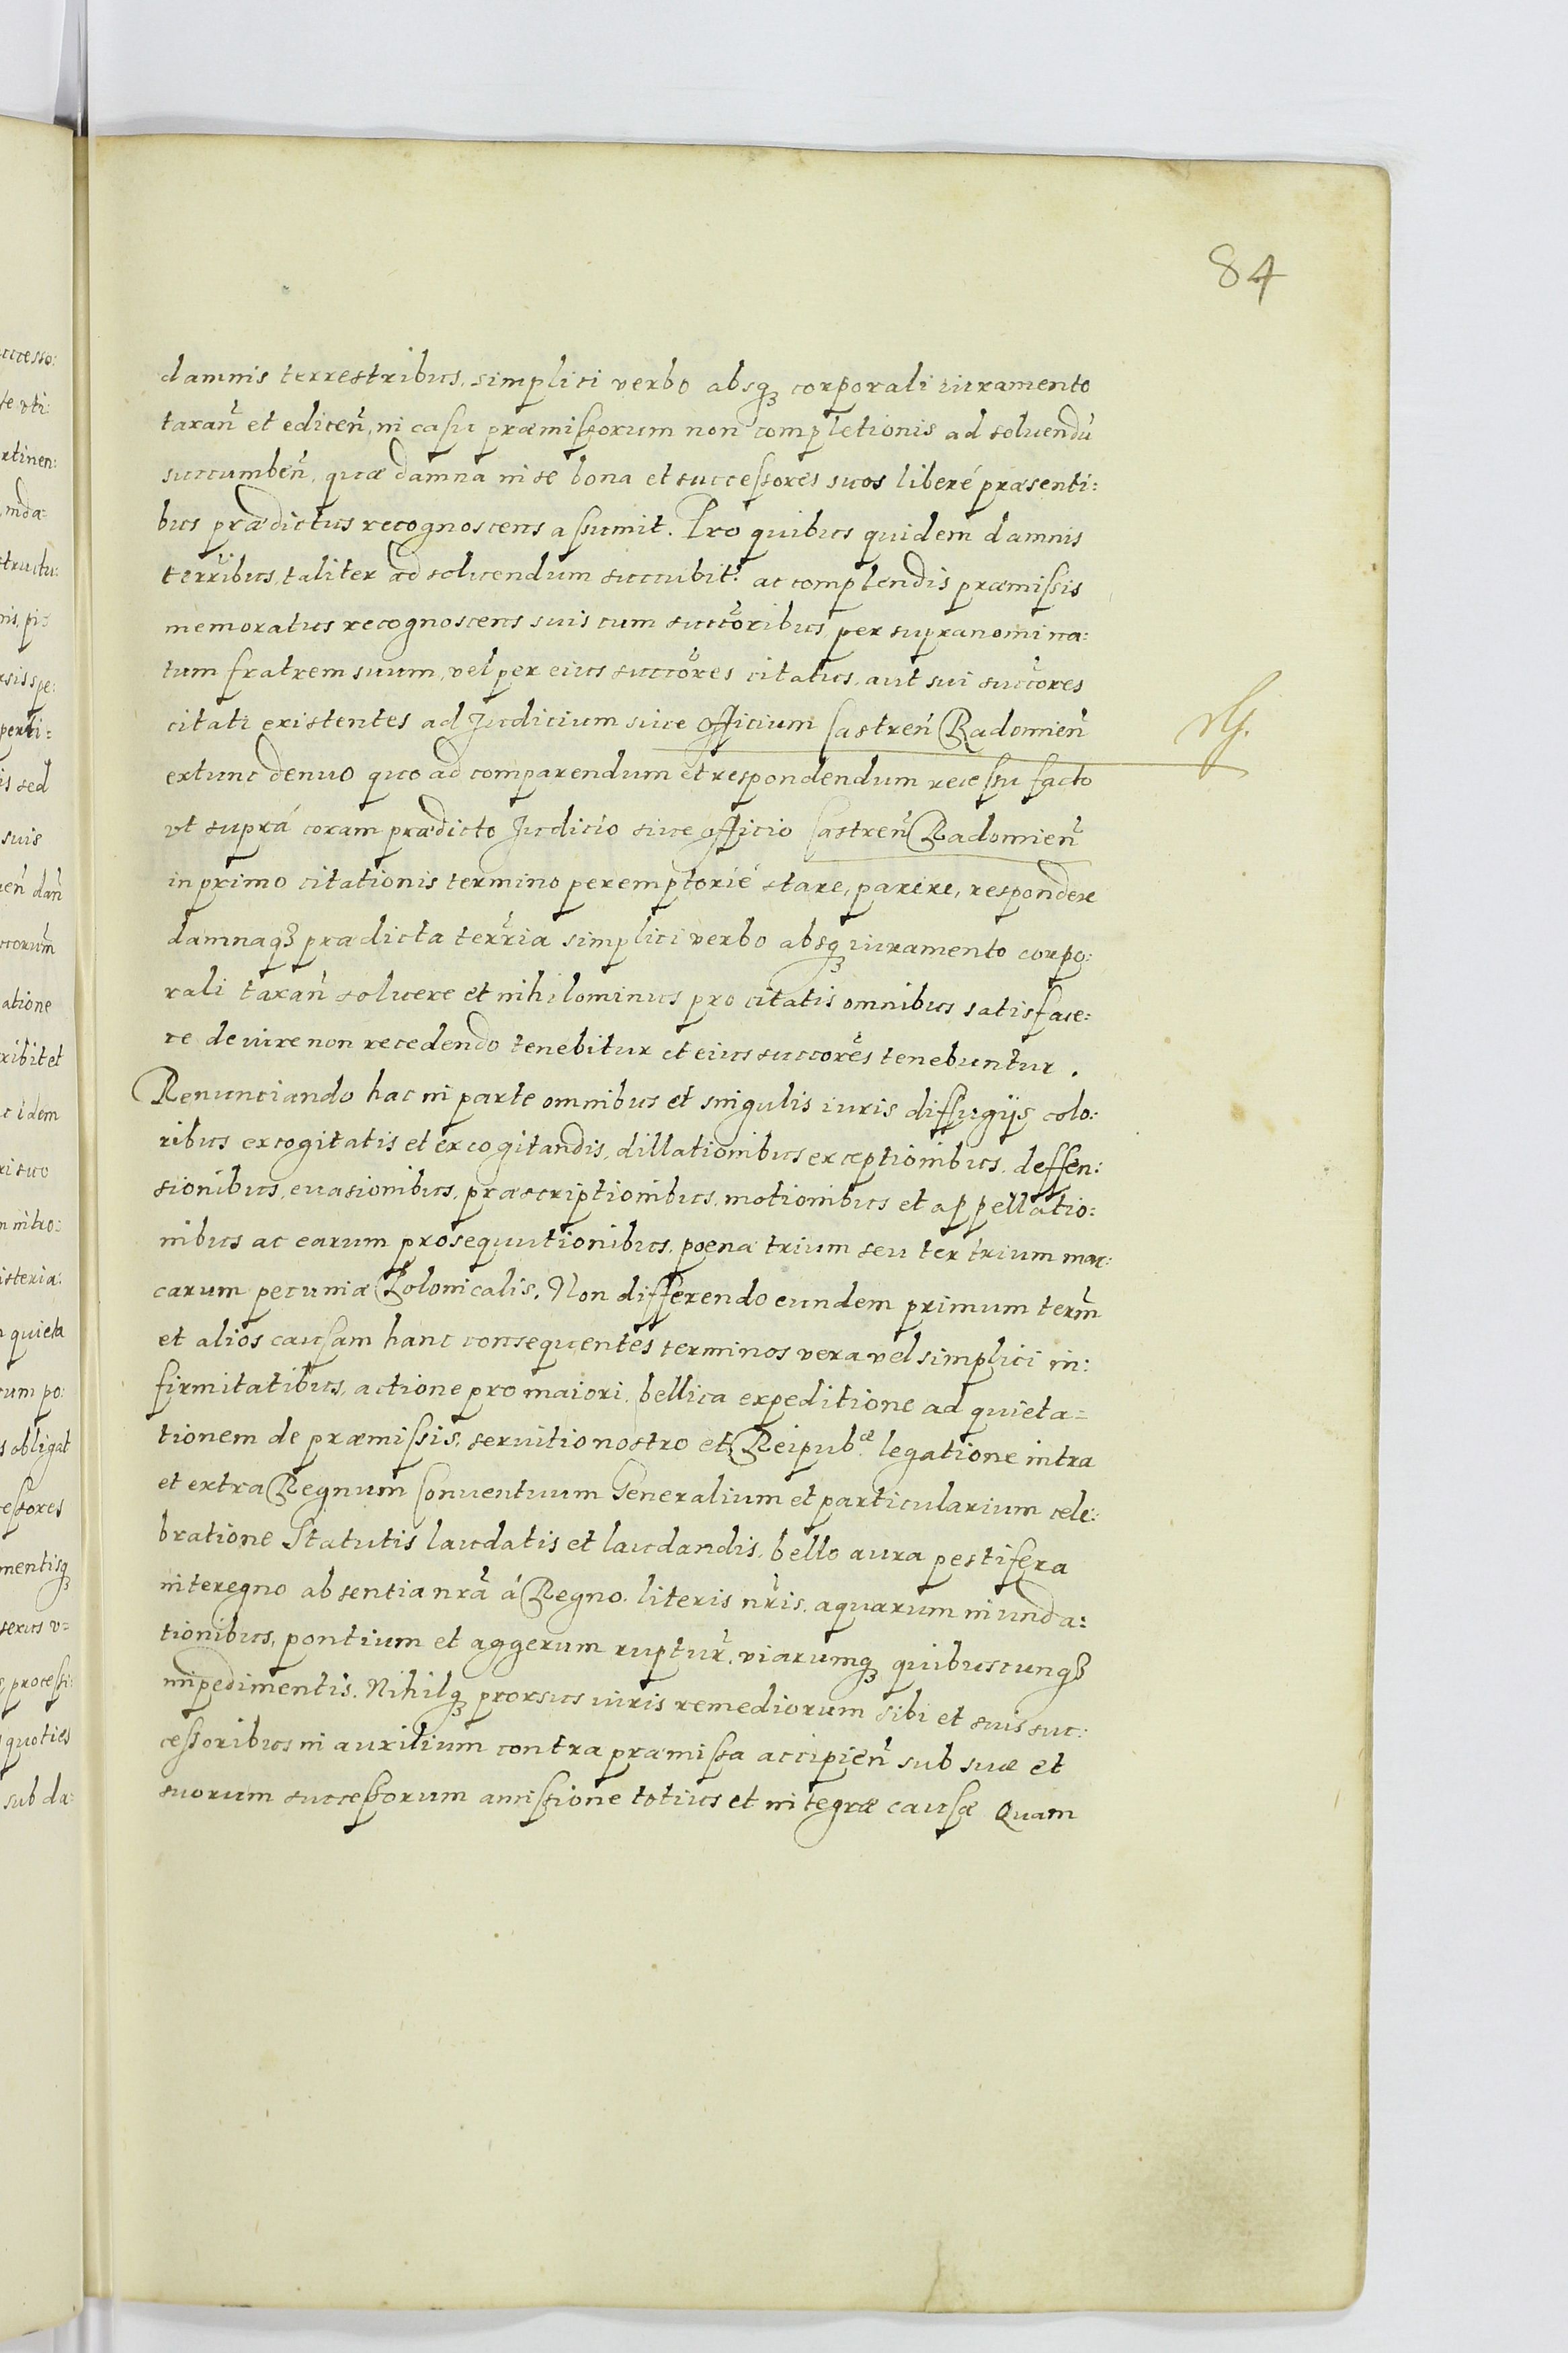 84
damnis terrestribus, simplici verbo absqꝫ corporali iuramento
taxan̄ et edicen̄, in casu præmissorum non completionis ad soluendū
succumben̄, quæ damna in se bona et successores suos liberé præsenti:
bus prædictus recognoscens assumit. Pro quibus quidem damnis
terr̄ibus, taliter ad soluendum succubit: ac complendis præmissis
memoratus recognoscens suis cum succ̄oribus, per supranomina:
tum fratrem suum, vel per eius succ̄ores citatus, aut sui succ̄ores
citati existentes ad Judicium siue Officium Castren̄ Radomien̄
extunc denuo quo ad comparendum et respondendum recessu facto
vt suprá coram prædicto Judicio siue officio Castren̄ Radomien̄
in primo citationis termino peremptorié stare, parere, respondere
damnaqꝫ prædicta terr̄ia simplici verbo absqꝫ iuramento corpo:
rali taxan̄ soluere et nihilominus pro citatis omnibus satisface:
re de iure non recedendo tenebitur et eius succ̄ores tenebuntur.
Renunciando hac in parte omnibus et singulis iuris diffugijs colo:
ribus excogitatis et excogitandis, dillationibus exceptionibus, deffen:
sionibus, euasionibus, præscriptionibus, motionibus et appellatio:
nibus ac earum prosequutionibus, poena trium seu ter trium mar:
carum pecuniæ Polonicalis. Non differendo eundem primum term̄
et alios causam hanc consequentes terminos vera vel simplici in:
firmitatibus, actione pro maiori, bellica expeditione ad quieta=
tionem de præmissis, seruitio nostro et Reipub:æ legatione intra
et extra Regnum Conuentuum Generalium et particularium cele:
bratione Statutis laudatis et laudandis, bello aura pestifera
interegno absentia nr̄a á Regno, literis nr̄is, aquarum inunda:
tionibus, pontium et aggerum ruptur̄, viarumqꝫ quibuscunqꝫ
impedimentis. Nihilqꝫ prorsus iuris remediorum sibi et suis suc:
cessoribus in auxilium contra præmissa accipien̄ sub suæ et
suorum successorum amissione totius et integræ causæ Quam